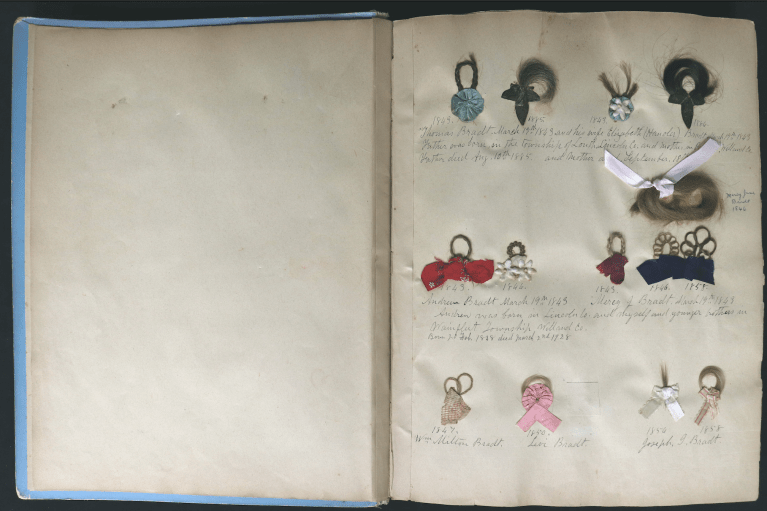 1843. 1885 1843 1886
Thomas Bradt March 19th 1843 and his wife Elizabeth (Hanslor) Bradt
Father was born in the township of Louth Lincoln Co. and mother in Welland Co.
Father died Aug. 10th 1885. and Mother died September. 18
Mercy Jane
Bradt
1846
1843. 1846. 1843 1846. 1853.
Andrew Bradt March 19th 1843 Mercy J Bradt March 19th 1843
Andrew was born in Lincoln Co. and myself and younger brothers in
Wainfleet Township, Welland Co.
Born 1st Feb. 1838 died March 2nd 1928
1847. 1850. 1854 1858
Wm Milton Bradt. Levi Bradt. Joseph G. Bradt